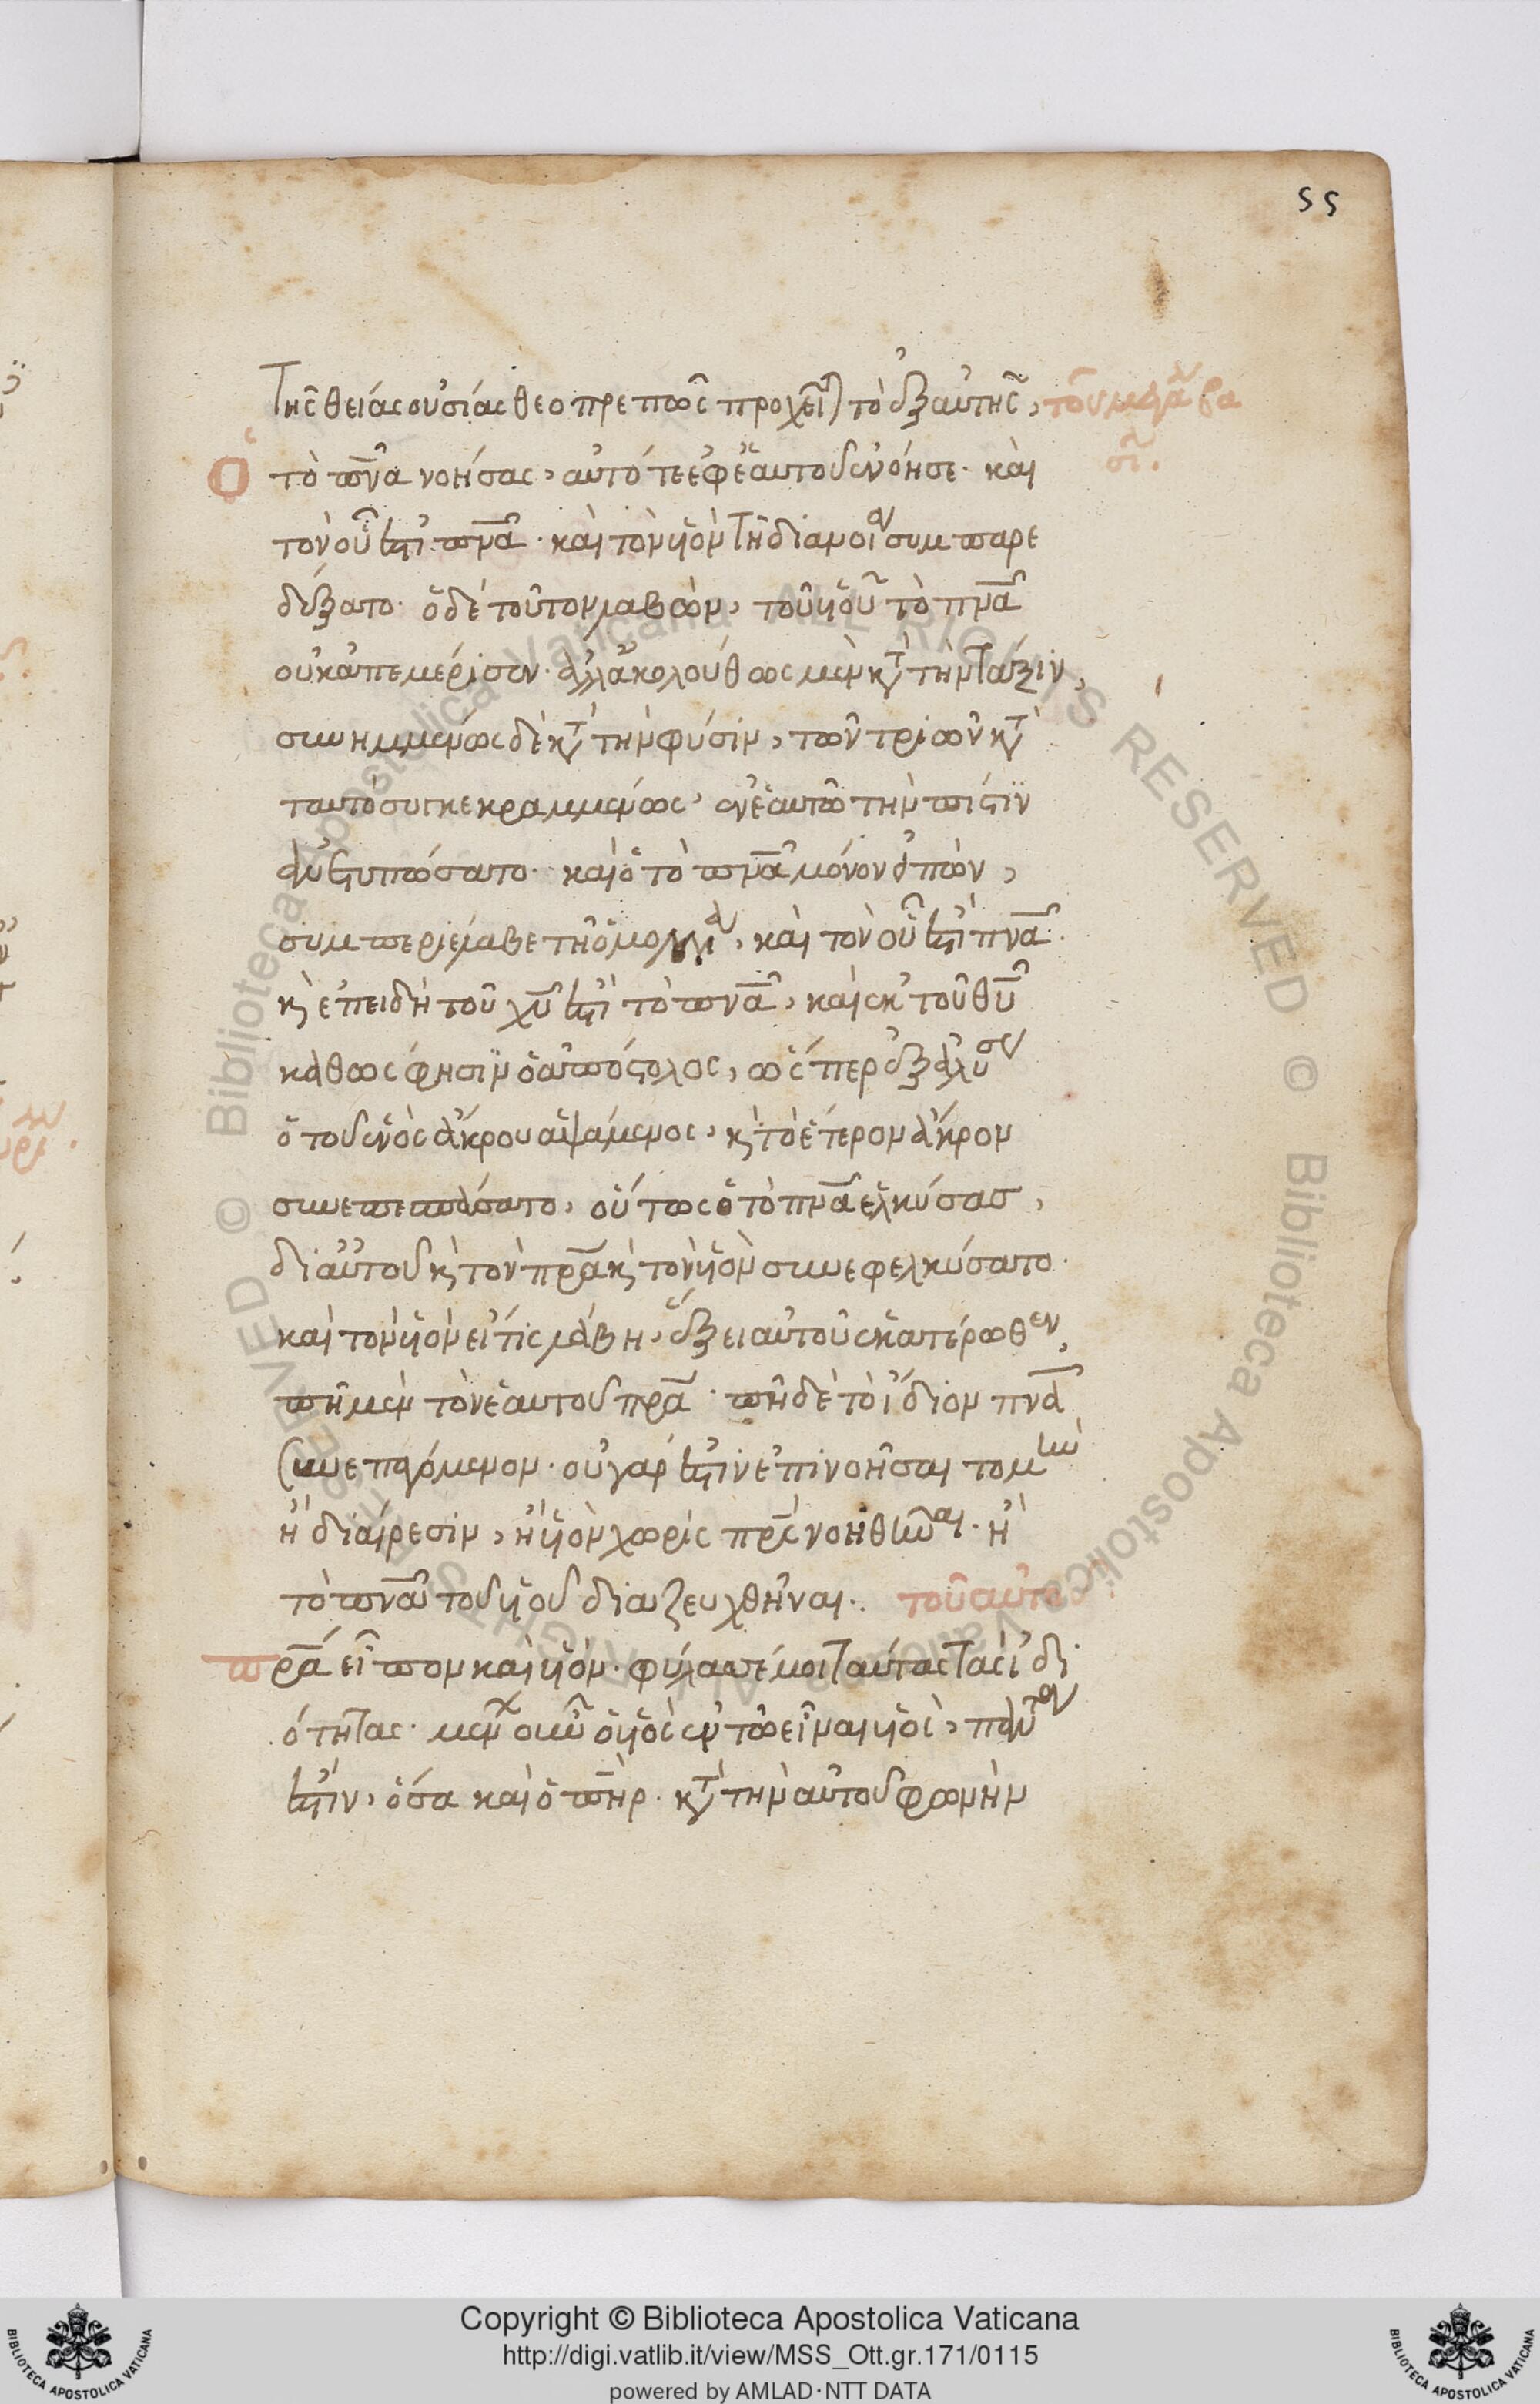 55
Τῆς θείας οὐσίας θεοπρεπῶς προχεῖται τὸ ἐξ αὐτῆς, τοῦ μεγά βα
σι.
Ὁ τὸ πνα νοήσας, αὐτό τε ἐφ ἑαυτοῦ ἐνόησε· καὶ
τὸν οὗ ἐστι πνα· καὶ τὸν υἱὸν τῇ διανοίᾳ συμπαρε
δέξατο· ὁ δὲ τοῦτον λαβὼν, τοῦ υἱοῦ τὸ πνα
οὐκ ἀπεμέρισεν· ἀλλ ἀκολούθως μὲν κατὰ τὴν τάξιν,
συνημμένως δὲ κατὰ τὴν φύσιν, τῶν τριῶν κατὰ
ταυτὸ συγκεκραμμένως, ἐν ἑαυτῷ τὴν πίστιν
ἀνετυπώσατο· καὶ ὁ τὸ πνα μόνον εἰπὼν,
συμπεριέλαβε τῇ ὁμολογίᾳ, καὶ τὸν οὗ ἐστὶ πνα·
κὶ ἐπειδὴ τοῦ χυ ἐστὶ τὸ πνα, καὶ ἐκ τοῦ θυ
καθώς φησὶν ὁ ἀπόστολος, ὥσπερ ἐξ ἁλύσεως
ὁ τοῦ ἑνὸς ἄκρου ἁψάμενος, κὶ τὸ ἕτερον ἄκρον
συνεπεσπάσατο, οὕτως ὁ τὸ πνα ἑλκύσας,
δι αὐτοῦ κὶ τὸν πρα κὶ τὸν υἱὸν συνεφελκύσατο·
καὶ τὸν υἱὸν εἴ τις λάβη, ἕξει αὐτοῦ ἑκατέρωθεν,
πῆ μὲν τὸν ἑαυτοῦ πρα· πῆ δὲ τὸ ἴδιον πνα
συνεπαγόμενον· οὐ γάρ ἐστὶν ἐπινοῆσαι τομὴν
ἢ διαίρεσιν, ἢ υἱὸν χωρὶς πρς νοηθῆναι· ἢ
τὸ πνα τοῦ υἱοῦ διαζευχθῆναι· τοῦ αὐτο
πρα εἶπον καὶ υἱὸν· φύλαττέ μοι ταύτας τὰς ἰδι
ότητας· μὲν οὖν ὁ υἱὸς ἐν τῷ εἶναι υἱὸς, πάντα
ἐστὶν, ὅσα καὶ ὁ πηρ· κατὰ τὴν αὐτοῦ φωνὴν
Copyright © Biblioteca Apostolica Vaticana
http://digi.vatlib.it/view/MSS_Ott.gr.171/0115
powered by AMLAD·NTT DATA